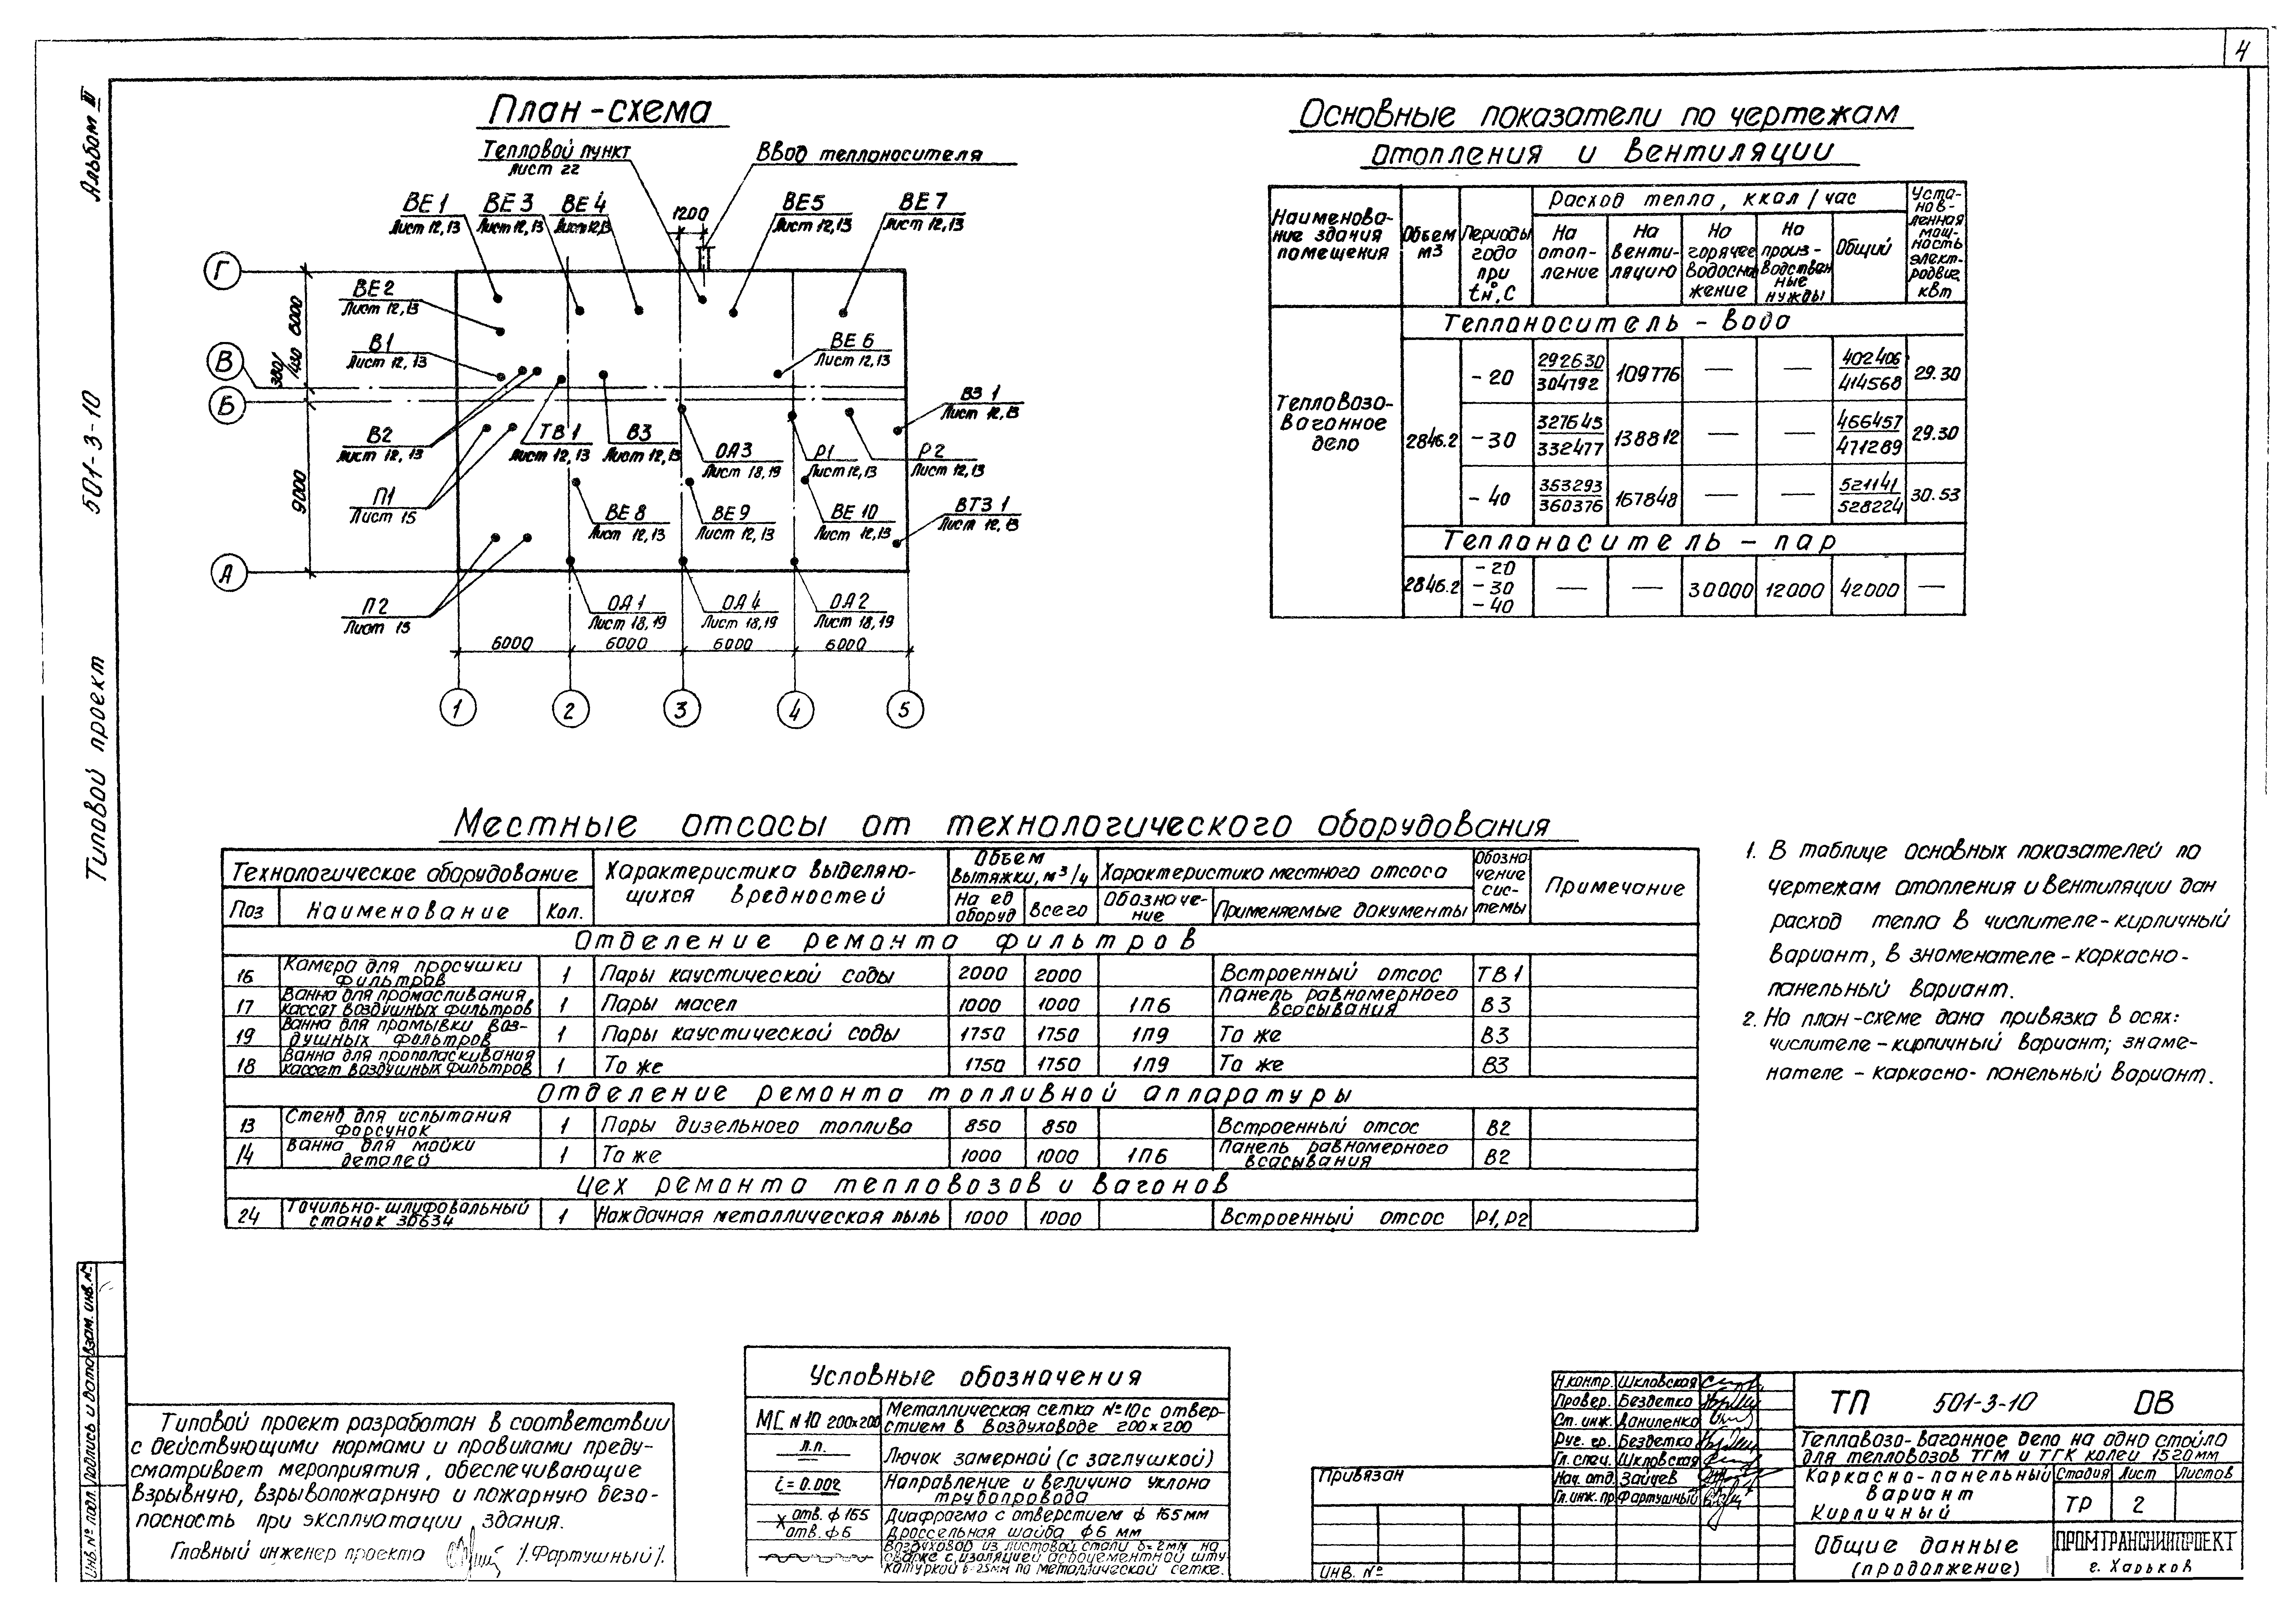 4
Альбом III
501-3-10
Типовой проект
План-схема
Тепловой пункт
Лист 22
Ввод теплоносителя
1200
ВЕ 1
Лист 12,13
ВЕ 3
Лист 12,13
ВЕ 4
Лист 12,13
ВЕ5
Лист 12,13
ВЕ 7
Лист 12,13
Г
ВЕ 2
Лист 12,13
6000
В1
Лист 12,13
ВЕ 6
Лист 12,13
В
380/430
Б
ВЗ 1
Лист 12,13
В2
Лист 12,13
ТВ 1
Лист 12,13
В3
Лист 12,13
ОА3
Лист 18,19
Р1
Лист 12,13
Р2
Лист 12,13
9000
П1
Лист 15
ВЕ 8
Лист 12,13
ВЕ 9
Лист 12,13
ВЕ 10
Лист 12,13
ВТЗ 1
Лист 12,13
А
П2
Лист 15
ОА 1
Лист 18,19
ОА 4
Лист 18,19
ОА 2
Лист 18,19
6000 6000 6000 6000
1 2 3 4 5
Основные показатели по чертежам
отопления и вентиляции
Наименова-
ние здания
помещения
Объем
м3
Периоды
года
при
tн°,С
Расход тепла, ккал/час
На
отоп-
ление
На
венти-
ляцию
На
горячее
водосна
жение
На
произ-
водствен
ные
нужды
Общий
Уста-
нов-
ленная
мощ-
ность
элект-
родвиг.
квт
Теплоноситель - вода
Тепловозо-
вагонное
депо
2846.2
-20 292630/304792 109776 — — 402406/414568 29.30
-30 327645/332477 138812 — — 466457/471289 29.30
-40 353293/360376 167848 — — 521141/528224 30.53
Теплоноситель - пар
2846.2 -20 -30 -40 — — 30000 12000 42000 —
Местные отсосы от технологического оборудования
Технологическое оборудование
Поз Наименование Кол.
Характеристика выделяю-
щихся вредностей
Объем
вытяжки, м³/ч
На ед
оборуд
всего
Характеристика местного отсоса
Обозначе-
ние
Применяемые документы
Обозна-
чение
сис-
темы
Примечание
Отделение ремонта фильтров
16 Камера для просушки фильтров 1 Пары каустической соды 2000 2000 Встроенный отсос ТВ 1
17 Ванна для промасливания кассет воздушных фильтров 1 Пары масел 1000 1000 1П6 Панель равномерного всасывания В3
19 Ванна для промывки воз-душных фильтров 1 Пары каустической соды 1750 1750 1П9 То же В3
18 Ванна для прополаскивания кассет воздушных фильтров 1 То же 1750 1750 1П9 То же В3
Отделение ремонта топливной аппаратуры
13 Стенд для испытания форсунок 1 Пары дизельного топлива 850 850 Встроенный отсос В2
14 Ванна для мойки деталей 1 То же 1000 1000 1П6 Панель равномерного всасывания В2
Цех ремонта тепловозов и вагонов
24 Точильно-шлифовальный станок 3Б634 1 Наждачная металлическая пыль 1000 1000 Встроенный отсос Р1, Р2
1. В таблице основных показателей по
чертежам отопления и вентиляции дан
расход тепла в числителе-кирпичный
вариант, в знаменателе-каркасно-
панельный вариант.
2. На план-схеме дана привязка в осях:
числителе-кирпичный вариант; знаме-
нателе - каркасно-панельный вариант.
Типовой проект разработан в соответствии
с действующими нормами и правилами преду-
сматривает мероприятия, обеспечивающие
взрывную, взрывопожарную и пожарную безо-
пасность при эксплуатации здания.
Главный инженер проекта /.Фартушный/.
Условные обозначения
МС N 10 200x200 Металлическая сетка №10 с отвер-
стием в воздуховоде 200x200
л.п. Лючок замерной (с заглушкой)
i=0.002 Направление и величина уклона
трубопровода
отв. ф 165 Диафрагма с отверстием ф 165мм
отв. ф 6 Дроссельная шайба ф 6 мм
Воздуховод из листовой стали δ=2мм на
сварке с изоляцией асбоцементной шту
катуркой δ=25мм по металлической сетке.
Привязан
Инв. №
Н.контр. Шкловская
Провер. Бездетко
Ст. инж. Даниленко
Рук. гр. Бездетко
Гл. спец. Шкловская
Нач. отд. Зайцев
Гл. инж. пр. Фартушный
ТП 501-3-10 ОВ
Тепловозо-вагонное депо на одно стойло
для тепловозов ТГМ и ТГК колеи 1520мм
Каркасно-панельный
вариант
Кирпичный
Стадия Лист Листов
ТР 2
Общие данные
(продолжение)
ПРОМТРАНСНИИПРОЕКТ
г. Харьков
Инв. № подл. Подпись и дата Взам. инв. №